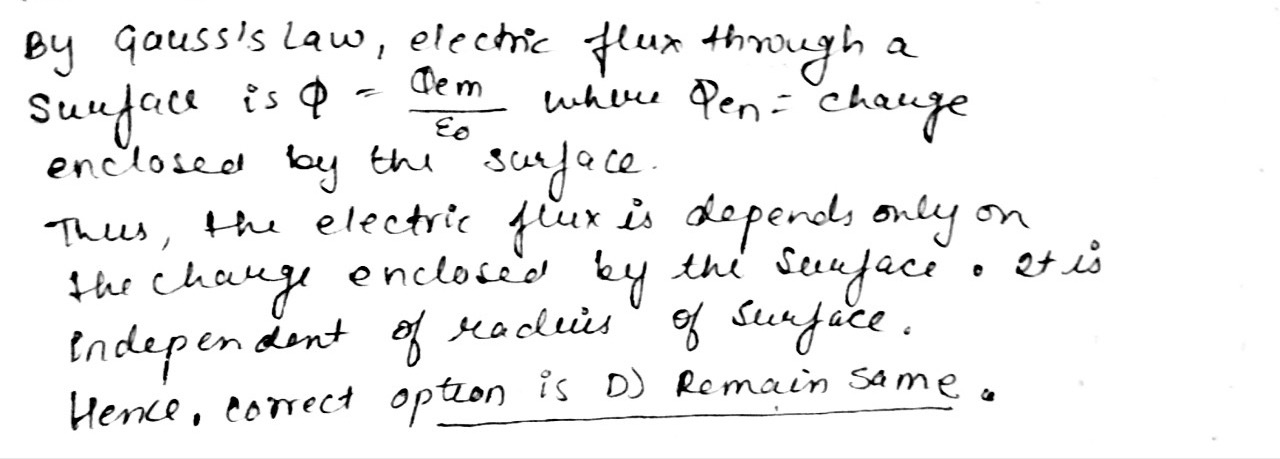 By Gauss's Law, electric flux through a
surface is ϕ = Qem/ε0 where Qen = charge
enclosed by the surface.
Thus, the electric flux is depends only on
the charge enclosed by the surface. It is
independent of radius of surface.
Hence, correct option is D) Remain same.